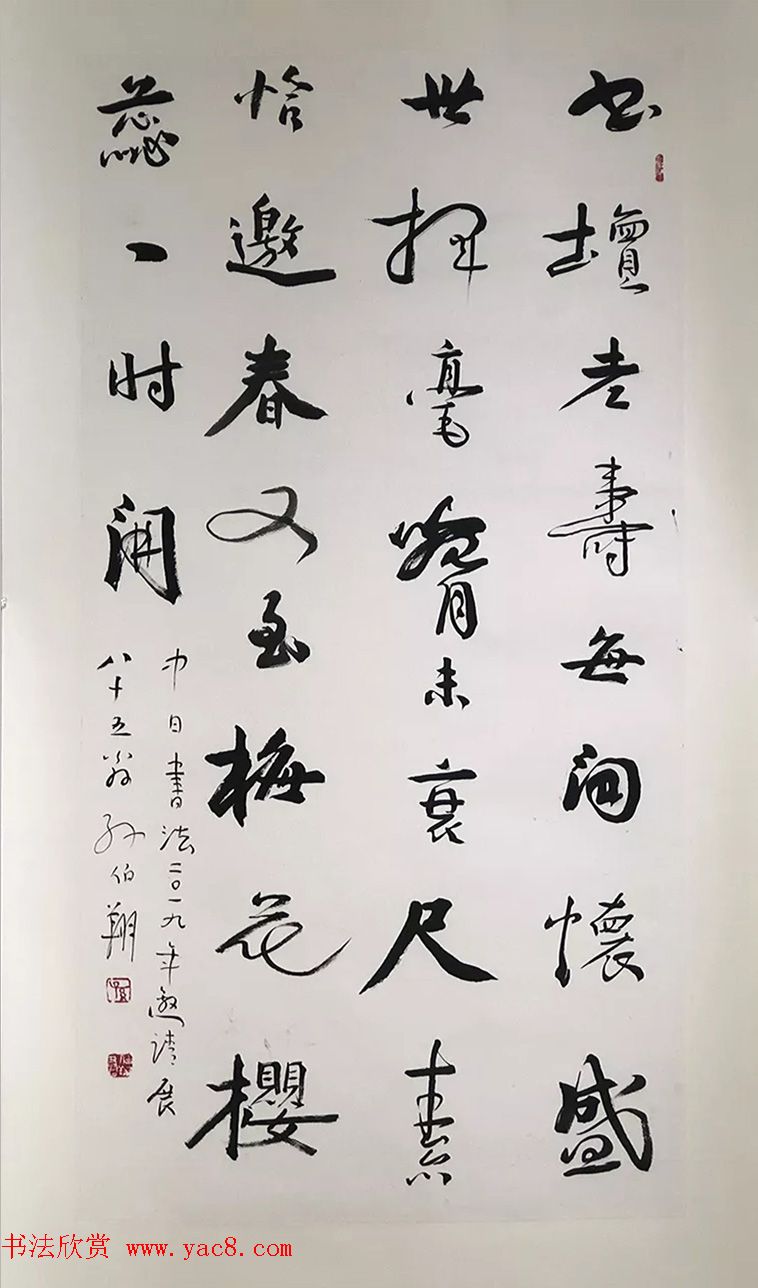 书壇老寿無间懷盛
世挥毫未衰尺素
恰邀春又至梅花櫻
蕊一时開
中日書法二〇一九年邀請展
八十五翁孙伯翔
书法欣赏 www.yac8.com